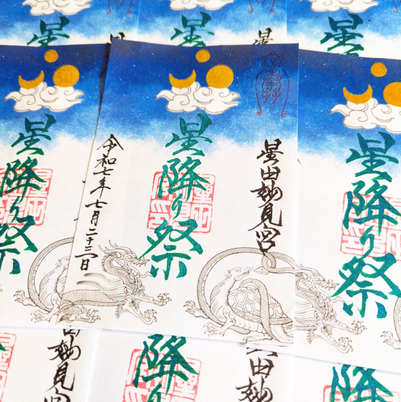 星田妙見宮
星降り祭
令和七年七月二十三日
星降り祭
星降り祭
星
星
星
星
降り
降り
星田妙見
田妙見宮